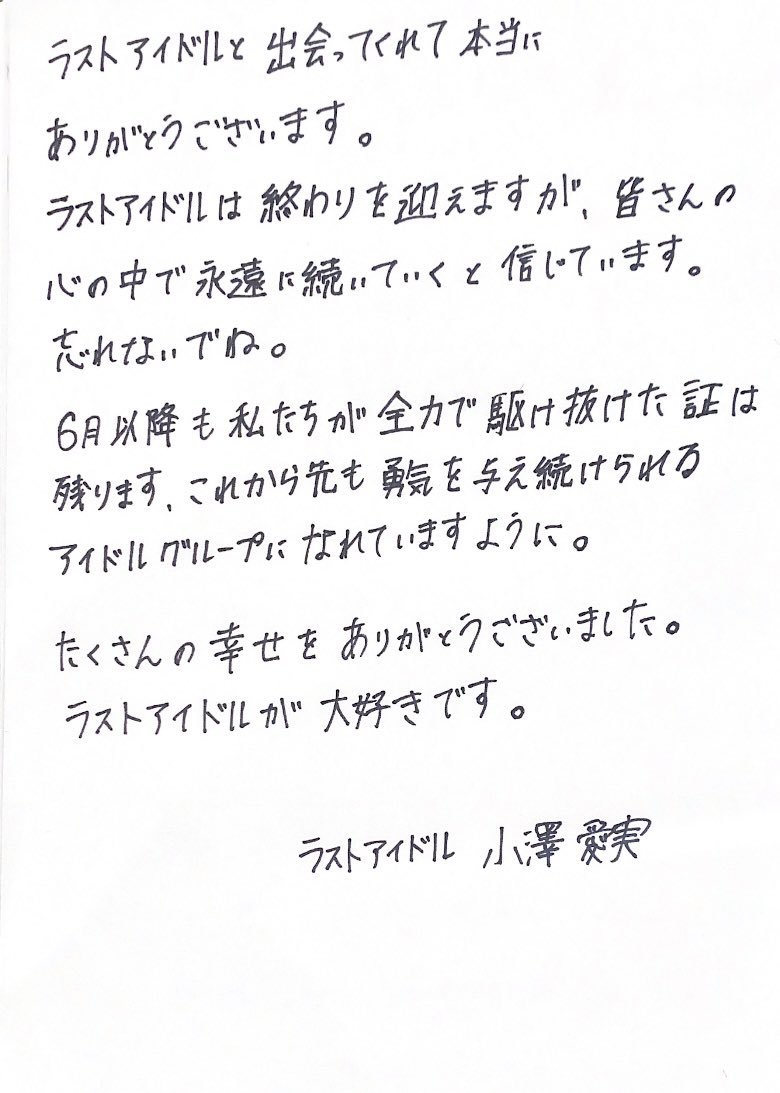 ラストアイドルと出会ってくれて本当に
ありがとうございます。
ラストアイドルは終わりを迎えますが、皆さんの
心の中で永遠に続いていくと信じています。
忘れないでね。
6月以降も私たちが全力で駆け抜けた証は
残ります、これから先も勇気を与え続けられる
アイドルグループになれていますように。
たくさんの幸せをありがとうございました。
ラストアイドルが大好きです。
ラストアイドル 小澤愛実